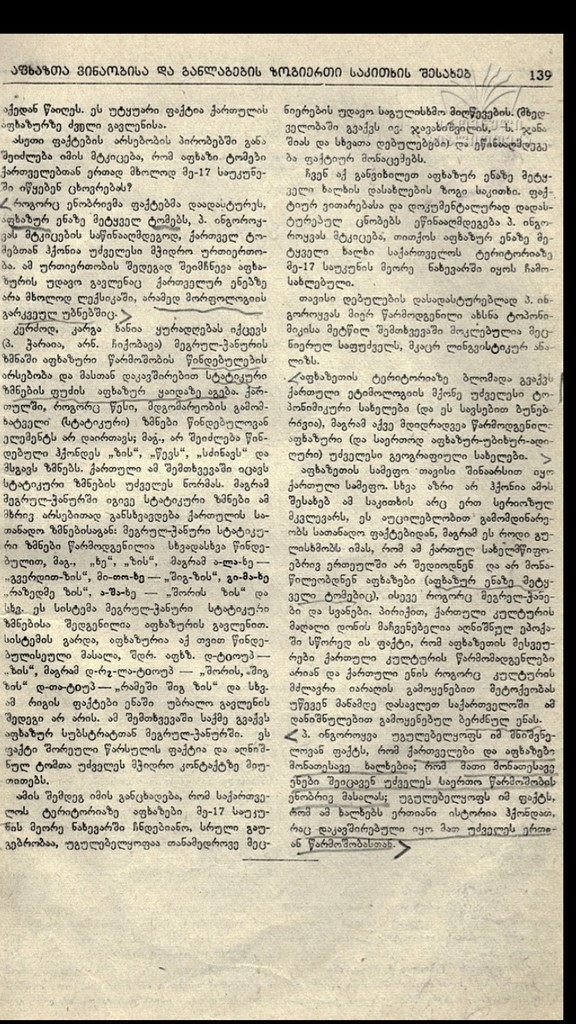 აფხაზთა ვინაობისა და განლაგების ზოგიერთი საკითხის შესახებ 139
აქედან წაიღეს. ეს უტყუარი ფაქტია ქართულის
აფხაზურზე ძველი გავლენისა.
ასეთი ფაქტების არსებობის პირობებში განა
შეიძლება იმის მტკიცება, რომ აფხაზი ტომები
ქართველებთან ერთად მხოლოდ მე-17 საუკუნე-
ში იწყებენ ცხოვრებას?
როგორც ენობრივმა ფაქტებმა დაადასტურეს,
აფხაზურ ენაზე მეტყველ ტომებს, პ. ინგოროყ-
ვას მტკიცების საწინააღმდეგოდ, ქართველ ტო-
მებთან ჰქონია უძველესი მჭიდრო ურთიერთო-
ბა. ამ ურთიერთობის შედეგად შეიმჩნევა აფხა-
ზურის უდავო გავლენაც ქართველურ ენებზე
არა მხოლოდ ლექსიკაში, არამედ მორფოლოგიის
გარკვეულ უბნებშიც.
კერძოდ, კარგა ხანია ყურადღებას იქცევს
(პ. ჭარაია, არნ. ჩიქობავა) მეგრულ-ჭანურის
ზმნაში აფხაზური წარმოშობის წინდებულების
არსებობა და მასთან დაკავშირებით სტატიკური
ზმნების ფუძის აფხაზურ ყაიდაზე აგება. ქარ-
თულში, როგორც წესი, მდგომარეობის გამომ-
ხატველი (სტატიკური) ზმნები წინდებულოვან
ელემენტს არ დაირთავს; მაგ., არ შეიძლება წინ-
დებული ჰქონდეს „ზის“, „წევს“, „სძინავს“ და
მსგავს ზმნებს. ქართული ამ შემთხვევაში იცავს
სტატიკური ზმნების უძველეს ნორმას. მაგრამ
მეგრულ-ჭანურში იგივე სტატიკური ზმნები ამ
მხრივ არსებითად განსხვავდება ქართულის სა-
თანადო ზმნებისაგან: მეგრულ-ჭანური სტატიკუ-
რი ზმნები წარმოდგენილია სხვადასხვა წინდე-
ბულით, მაგ., „ხე“, „ზის“, მაგრამ ა-ლა-ხე —
„გვერდით-ზის“, მი-თო-ხე — „შიგ-ზის“, გი-მა-ხე
„რაზედმე ზის“, ა-შა-ხე — „შორის ზის“ და
სხვ. ეს სისტემა მეგრულ-ჭანური სტატიკური
ზმნებისა შედგენილია აფხაზურის გავლენით.
სისტემის გარდა, აფხაზურია აქ თვით წინდე-
ბულისეული მასალა, შდრ. აფხზ.
„ზის“, მაგრამ — „შორის, „შიგ
ზის“ — „რამეში შიგ ზის“ და სხვ.
ამ რიგის ფაქტები ენაში უბრალო გავლენის
შედეგი არ არის. ამ შემთხვევაში საქმე გვაქვს
აფხაზურ სუბსტრატთან მეგრულ-ჭანურში. ეს
ფაქტი შორეული წარსულის ფაქტია და აღნიშ-
ნულ ტომთა უძველეს მჭიდრო კონტაქტზე მიუ-
თითებს.
ამის შემდეგ იმის განცხადება, რომ საქართვე-
ლოს ტერიტორიაზე აფხაზები მე-17 საუკუ-
ნის მეორე ნახევარში ჩნდებიანო, სრული გაუ-
გებრობაა, უგულებელყოფაა თანამედროვე მეც-
ნიერების უდავო საგულისხმო მიღწევების. (მხედ-
ველობაში გვაქვს ივ. ჯავახიშვილის, ს. ჯანა-
შიას და სხვათა დებულებები) და ეწინააღმდეგე-
ბა ფაქტიურ მონაცემებს.
ჩვენ აქ განვიხილეთ აფხაზურ ენაზე მეტყ-
ველი ხალხის დასახლების ზოგი საკითხი. ფაქ-
ტიურ ვითარებასა და დოკუმენტალურად დადას-
ტურებულ ცნობებს ეწინააღმდეგება პ. ინგო-
როყვას მტკიცება, თითქოს აფხაზურ ენაზე მე-
ტყველი ხალხი საქართველოს ტერიტორიაზე
მე-17 საუკუნის მეორე ნახევარში იყოს ჩამო-
სახლებული.
თავისი დებულების დასადასტურებლად პ. ინ-
გოროყვას მიერ წარმოდგენილი ახსნა ტოპონი-
მიკისა მეტწილ შემთხვევაში მოკლებულია მეც-
ნიერულ საფუძველს, მკაცრ ლინგვისტიკურ ანა-
ლიზს.
აფხაზეთის ტერიტორიაზე ბლომადა გვაქვს
ქართული ეტიმოლოგიის მქონე უძველესი ტო-
პონიმიკური სახელები (და ეს სავსებით ბუნებ-
რივია), მაგრამ აქვე მდიდრადვეა წარმოდგენილი
აფხაზური (და საერთოდ აფხაზურ-უბიხურ-ადი-
ღური) უძველესი გეოგრაფიული სახელები.
აფხაზეთის სამეფო თავისი შინაარსით იყო
ქართული სამეფო. სხვა აზრი არ ჰქონია ამის
შესახებ ამ საკითხის არც ერთ სერიოზულ
მკვლევარს, ეს აუცილებლობით გამომდინარე-
ობს სათანადო ფაქტებიდან, მაგრამ ეს როდი გუ-
ლისხმობს იმას, რომ ამ ქართულ სახელმწიფო-
ებრივ ერთეულში არ შედიოდნენ და არ მონა-
წილეობდნენ აფხაზები (აფხაზურ ენაზე მეტყ-
ველი ტომებიც), ისევე როგორც მეგრელ-ჭანე-
ბი და სვანები. პირიქით, ქართული კულტურის
მაღალი დონის მაჩვენებელია აღნიშნულ ეპოქა-
ში სწორედ ის ფაქტი, რომ აფხაზეთის მესვეუ-
რები ქართული კულტურის წარმომადგენლები
არიან და ქართული ენის როგორც კულტურის
მძლავრი იარაღის გამოყენებით მეტოქეობას
უწევენ მანამდე დასავლეთ საქართველოში ამ
დანიშნულებით გამოყენებულ ბერძნულ ენას.
პ. ინგოროყვა უგულებელყოფს იმ მნიშვნე-
ლოვან ფაქტს, რომ ქართველები და აფხაზები
მონათესავე ხალხებია; რომ მათი მონათესავე
ენები შეიცავენ უძველეს საერთო წარმოშობის
ენობრივ მასალას; უგულებელყოფს იმ ფაქტს,
რომ ამ ხალხებს ერთიანი ისტორია ჰქონდათ,
რაც დაკავშირებული იყო მათ უძველეს ერთი-
ან წარმოშობასთან.